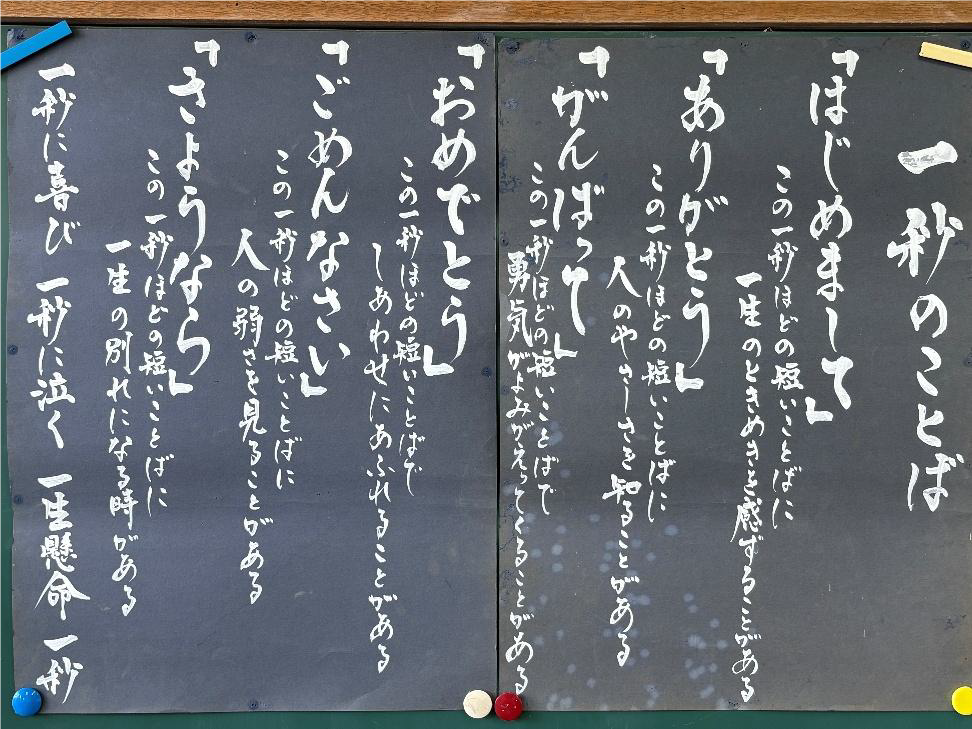 一秒のことば
「はじめまして」
この一秒ほどの短いことばに
一生のときめきを感ずることがある
「ありがとう」
この一秒ほどの短いことばに
人のやさしさを知ることがある
「がんばって」
この一秒ほどの短いことばで
勇気がよみがえってくることがある
「おめでとう」
この一秒ほどの短いことばで
しあわせにあふれることがある
「ごめんなさい」
この一秒ほどの短いことばに
人の弱さを見ることがある
「さようなら」
この一秒ほどの短いことばに
一生の別れになる時がある
一秒に喜び 一秒に泣く 一生懸命 一秒